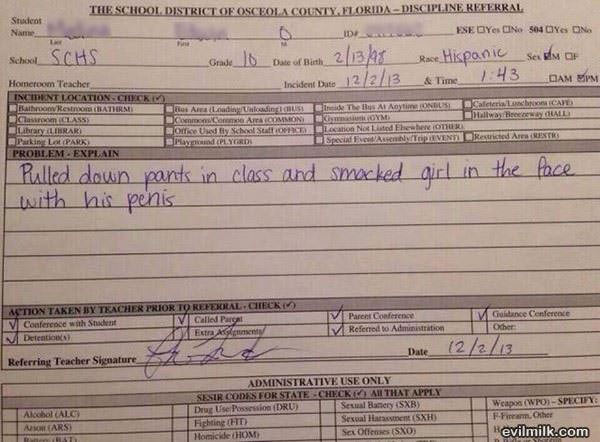 THE SCHOOL DISTRICT OF OSCEOLA COUNTY, FLORIDA – DISCIPLINE REFERRAL
Student
Name ID# ESE ☐Yes ☐No 504 ☐Yes ☐No
Last First MI
School SCHS Grade 10 Date of Birth 2/13/98 Race Hispanic Sex ☑M ☐F
Homeroom Teacher Incident Date 12/2/13 & Time 1:43 ☐AM ☑PM
INCIDENT LOCATION - CHECK (✓)
☐Bathroom/Restroom (BATHRM) ☐Bus Area (Loading/Unloading) (BUS) ☐Inside The Bus At Anytime (ONBUS) ☐Cafeteria/Lunchroom (CAFE)
☐Classroom (CLASS) ☐Commons/Common Area (COMMON) ☐Gymnasium (GYM) ☐Hallway/Breezeway (HALL)
☐Library (LIBRAR) ☐Office Used By School Staff (OFFICE) ☐Location Not Listed Elsewhere (OTHER)
☐Parking Lot (PARK) ☐Playground (PLYGRD) ☐Special Event/Assembly/Trip (EVENT) ☐Restricted Area (RESTR)
PROBLEM - EXPLAIN
Pulled down pants in class and smacked girl in the face
with his penis
ACTION TAKEN BY TEACHER PRIOR TO REFERRAL - CHECK (✓)
✓ Conference with Student ✓ Called Parent ✓ Parent Conference ✓ Guidance Conference
✓ Detention(s) Extra Assignments ✓ Referred to Administration Other:
Referring Teacher Signature Date 12/2/13
ADMINISTRATIVE USE ONLY
SESIR CODES FOR STATE - CHECK (✓) All THAT APPLY
Alcohol (ALC) Drug Use/Possession (DRU) Sexual Battery (SXB) Weapon (WPO) – SPECIFY:
Arson (ARS) Fighting (FIT) Sexual Harassment (SXH) F-Firearm, Other
Homicide (HOM) Sex Offenses (SXO)
evilmilk.com